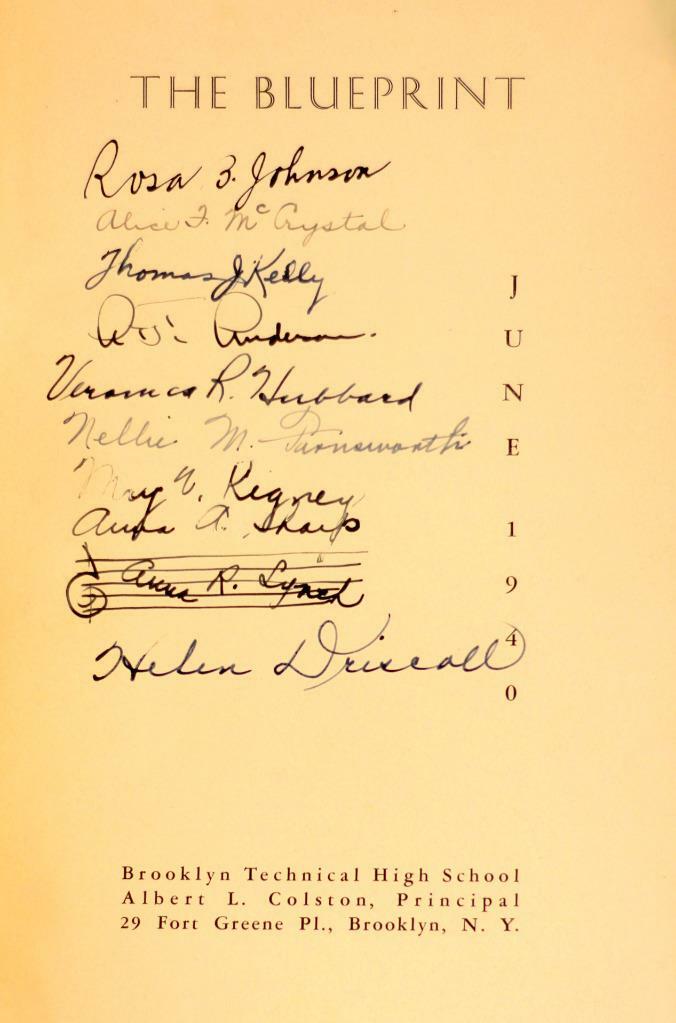 THE BLUEPRINT
Rosa B. Johnson
Alice F. McCrystal
Thomas J Kelly
Anderson.
Veronica R. Hubbard
Nellie M. Farnsworth
May V. Rigney
Anna A. Sharp
Anna R. Lynch
Helen Driscoll
JUNE 1940
Brooklyn Technical High School
Albert L. Colston, Principal
29 Fort Greene Pl., Brooklyn, N. Y.